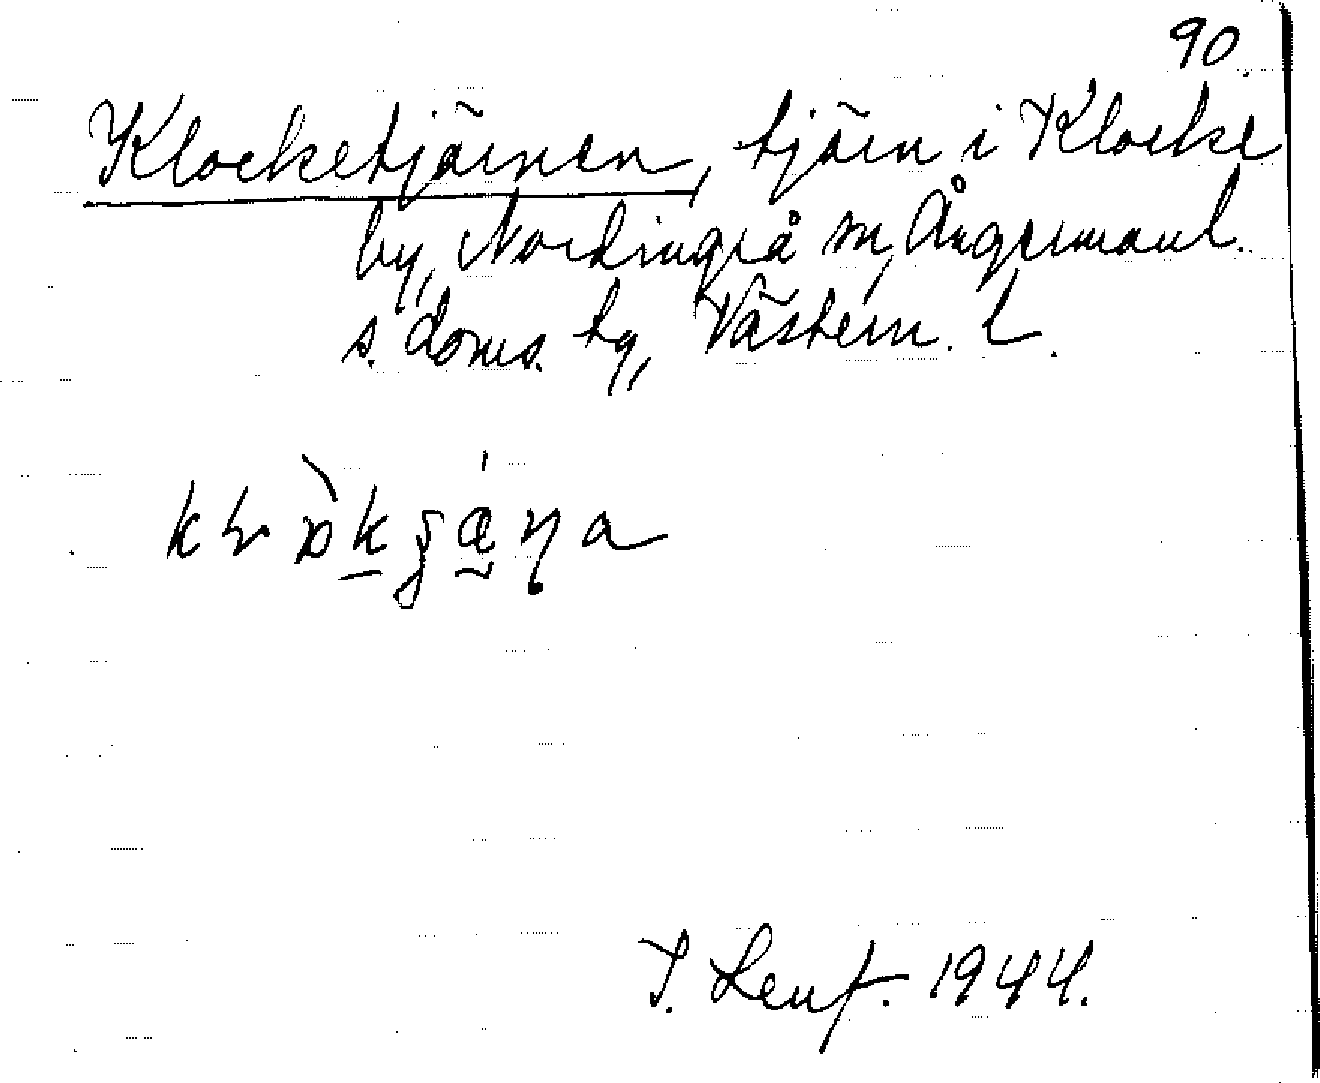 90.
Klocketjärnen, tjärn i Klocke
by, Nordingrå sn, Ångermanl.
s. doms. tg, Västern. l.
T. Lenf. 1944.